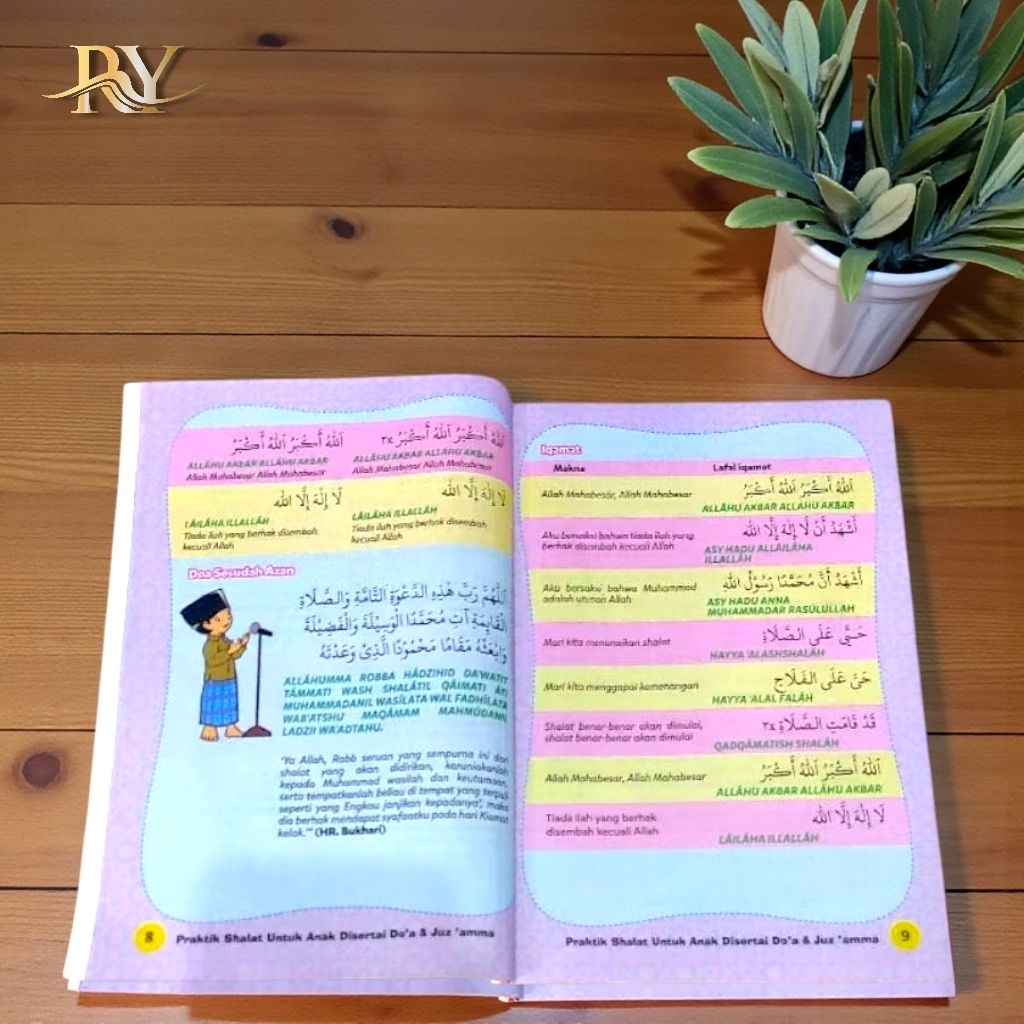 RY
اَللّٰهُ أَكْبَرُ اَللّٰهُ أَكْبَرُ
ALLÂHU AKBAR ALLÂHU AKBAR
Allah Mahabesar Allah Mahabesar
اَللّٰهُ أَكْبَرُ اَللّٰهُ أَكْبَرُ ٢x
ALLÂHU AKBAR ALLÂHU AKBAR
Allah Mahabesar Allah Mahabesar
لَا إِلٰهَ إِلَّا اللّٰه
LÂILÂHA ILLALLÂH
Tiada ilah yang berhak disembah
kecuali Allah
لَا إِلٰهَ إِلَّا اللّٰه
LÂILÂHA ILLALLÂH
Tiada ilah yang berhak disembah
kecuali Allah
Doa Sesudah Azan
اَللّٰهُمَّ رَبَّ هٰذِهِ الدَّعْوَةِ التَّامَّةِ وَالصَّلَاةِ
الْقَائِمَةِ آتِ مُحَمَّدًا الْوَسِيْلَةَ وَالْفَضِيْلَةَ
وَابْعَثْهُ مَقَامًا مَحْمُوْدًا الَّذِىْ وَعَدْتَهُ
ALLÂHUMMA ROBBA HÂDZIHID DA'WATIT
TÂMMATI WASH SHALÂTIL QÂIMATI ÂTI
MUHAMMADANIL WASÎLATA WAL FADHÎLATA
WAB'ATSHU MAQÂMAM MAHMÛDANIL
LADZII WA'ADTAHU.
"Ya Allah, Robb seruan yang sempurna ini dan
shalat yang akan didirikan, karuniakanlah
kepada Muhammad wasilah dan keutamaan,
serta tempatkanlah beliau di tempat yang terpuji
seperti yang Engkau janjikan kepadanya', maka
dia berhak mendapat syafaatku pada hari Kiamat
kelak." (HR. Bukhari)
8 Praktik Shalat Untuk Anak Disertai Do'a & Juz 'amma
Iqamat
Makna Lafal iqamat
Allah Mahabesar, Allah Mahabesar
اَللّٰهُ أَكْبَرُ اَللّٰهُ أَكْبَرُ
ALLÂHU AKBAR ALLÂHU AKBAR
Aku bersaksi bahwa tiada ilah yang
berhak disembah kecuali Allah
أَشْهَدُ أَنْ لَا إِلٰهَ إِلَّا اللّٰه
ASY HADU ALLÂILÂHA
ILLALLÂH
Aku bersaksi bahwa Muhammad
adalah utusan Allah
أَشْهَدُ أَنَّ مُحَمَّدًا رَسُوْلُ اللّٰهِ
ASY HADU ANNA
MUHAMMADAR RASÛLULLAH
Mari kita menunaikan shalat
حَيَّ عَلَى الصَّلَاةِ
HAYYA 'ALASHSHALÂH
Mari kita menggapai kemenangan
حَيَّ عَلَى الْفَلَاحِ
HAYYA 'ALAL FALÂH
Shalat benar-benar akan dimulai,
shalat benar-benar akan dimulai
قَدْ قَامَتِ الصَّلَاةِ ٢x
QADQÂMATISH SHALÂH
Allah Mahabesar, Allah Mahabesar
اَللّٰهُ أَكْبَرُ اَللّٰهُ أَكْبَرُ
ALLÂHU AKBAR ALLÂHU AKBAR
Tiada ilah yang berhak
disembah kecuali Allah
لَا إِلٰهَ إِلَّا اللّٰه
LÂILÂHA ILLALLÂH
Praktik Shalat Untuk Anak Disertai Do'a & Juz 'amma 9